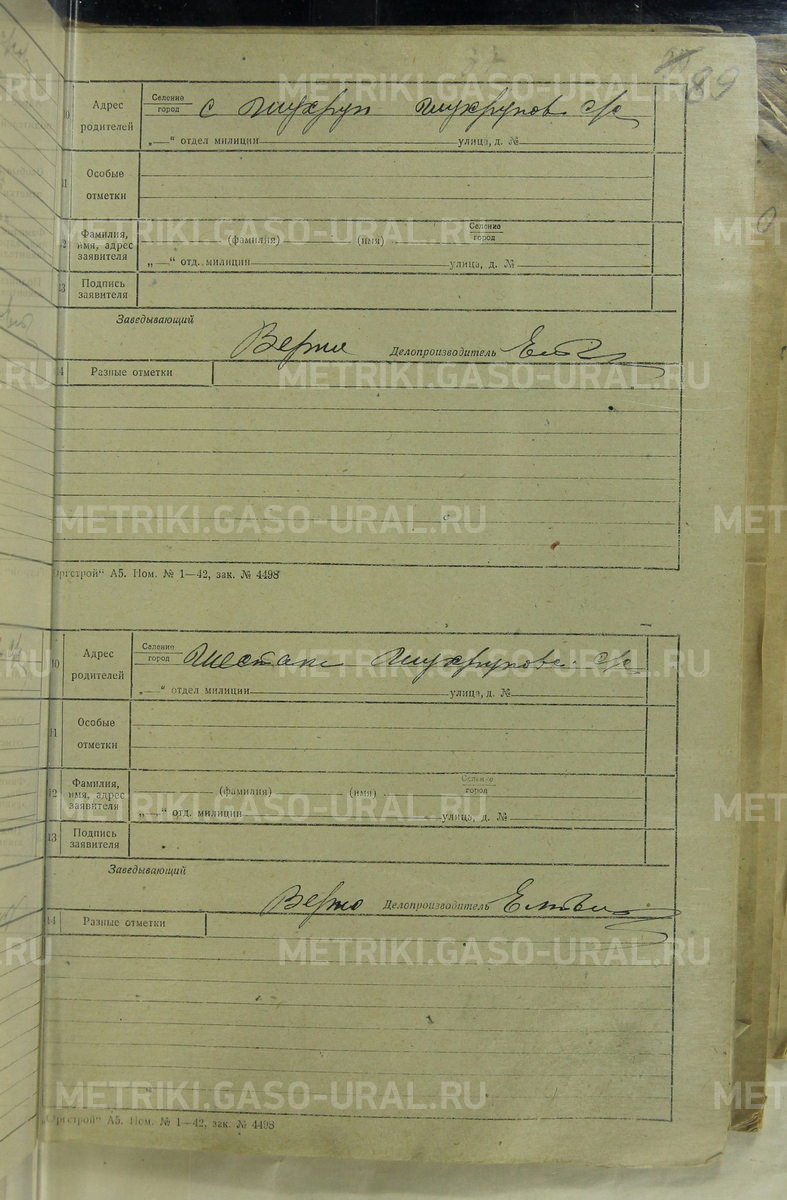 89
10 Адрес родителей
Селение город с Шухруп Шухрупов. с/с
„ “ отдел милиции улица, д. №
11 Особые отметки
12 Фамилия, имя, адрес заявителя
(фамилия) (имя) Селение город
„ “ отд. милиции улица, д. №
13 Подпись заявителя
Заведывающий
Верно Делопроизводитель
14 Разные отметки
„Оргстрой“ А5. Пом. № 1—42, зак. № 4498
10 Адрес родителей
Селение город Шестаки Шухрупов. с/с
„ “ отдел милиции улица, д. №
11 Особые отметки
12 Фамилия, имя, адрес заявителя
(фамилия) (имя) Селение город
„ “ отд. милиции улица, д. №
13 Подпись заявителя
Заведывающий
Верно Делопроизводитель
14 Разные отметки
„Оргстрой“ А5. Пом. № 1—42, зак. № 4498
METRIKI.GASO-URAL.RU